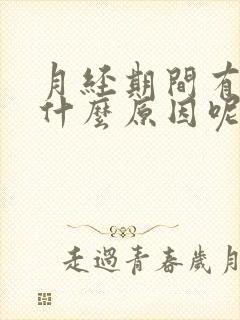 月経期間有
什麼原因呢
走過青春歲月